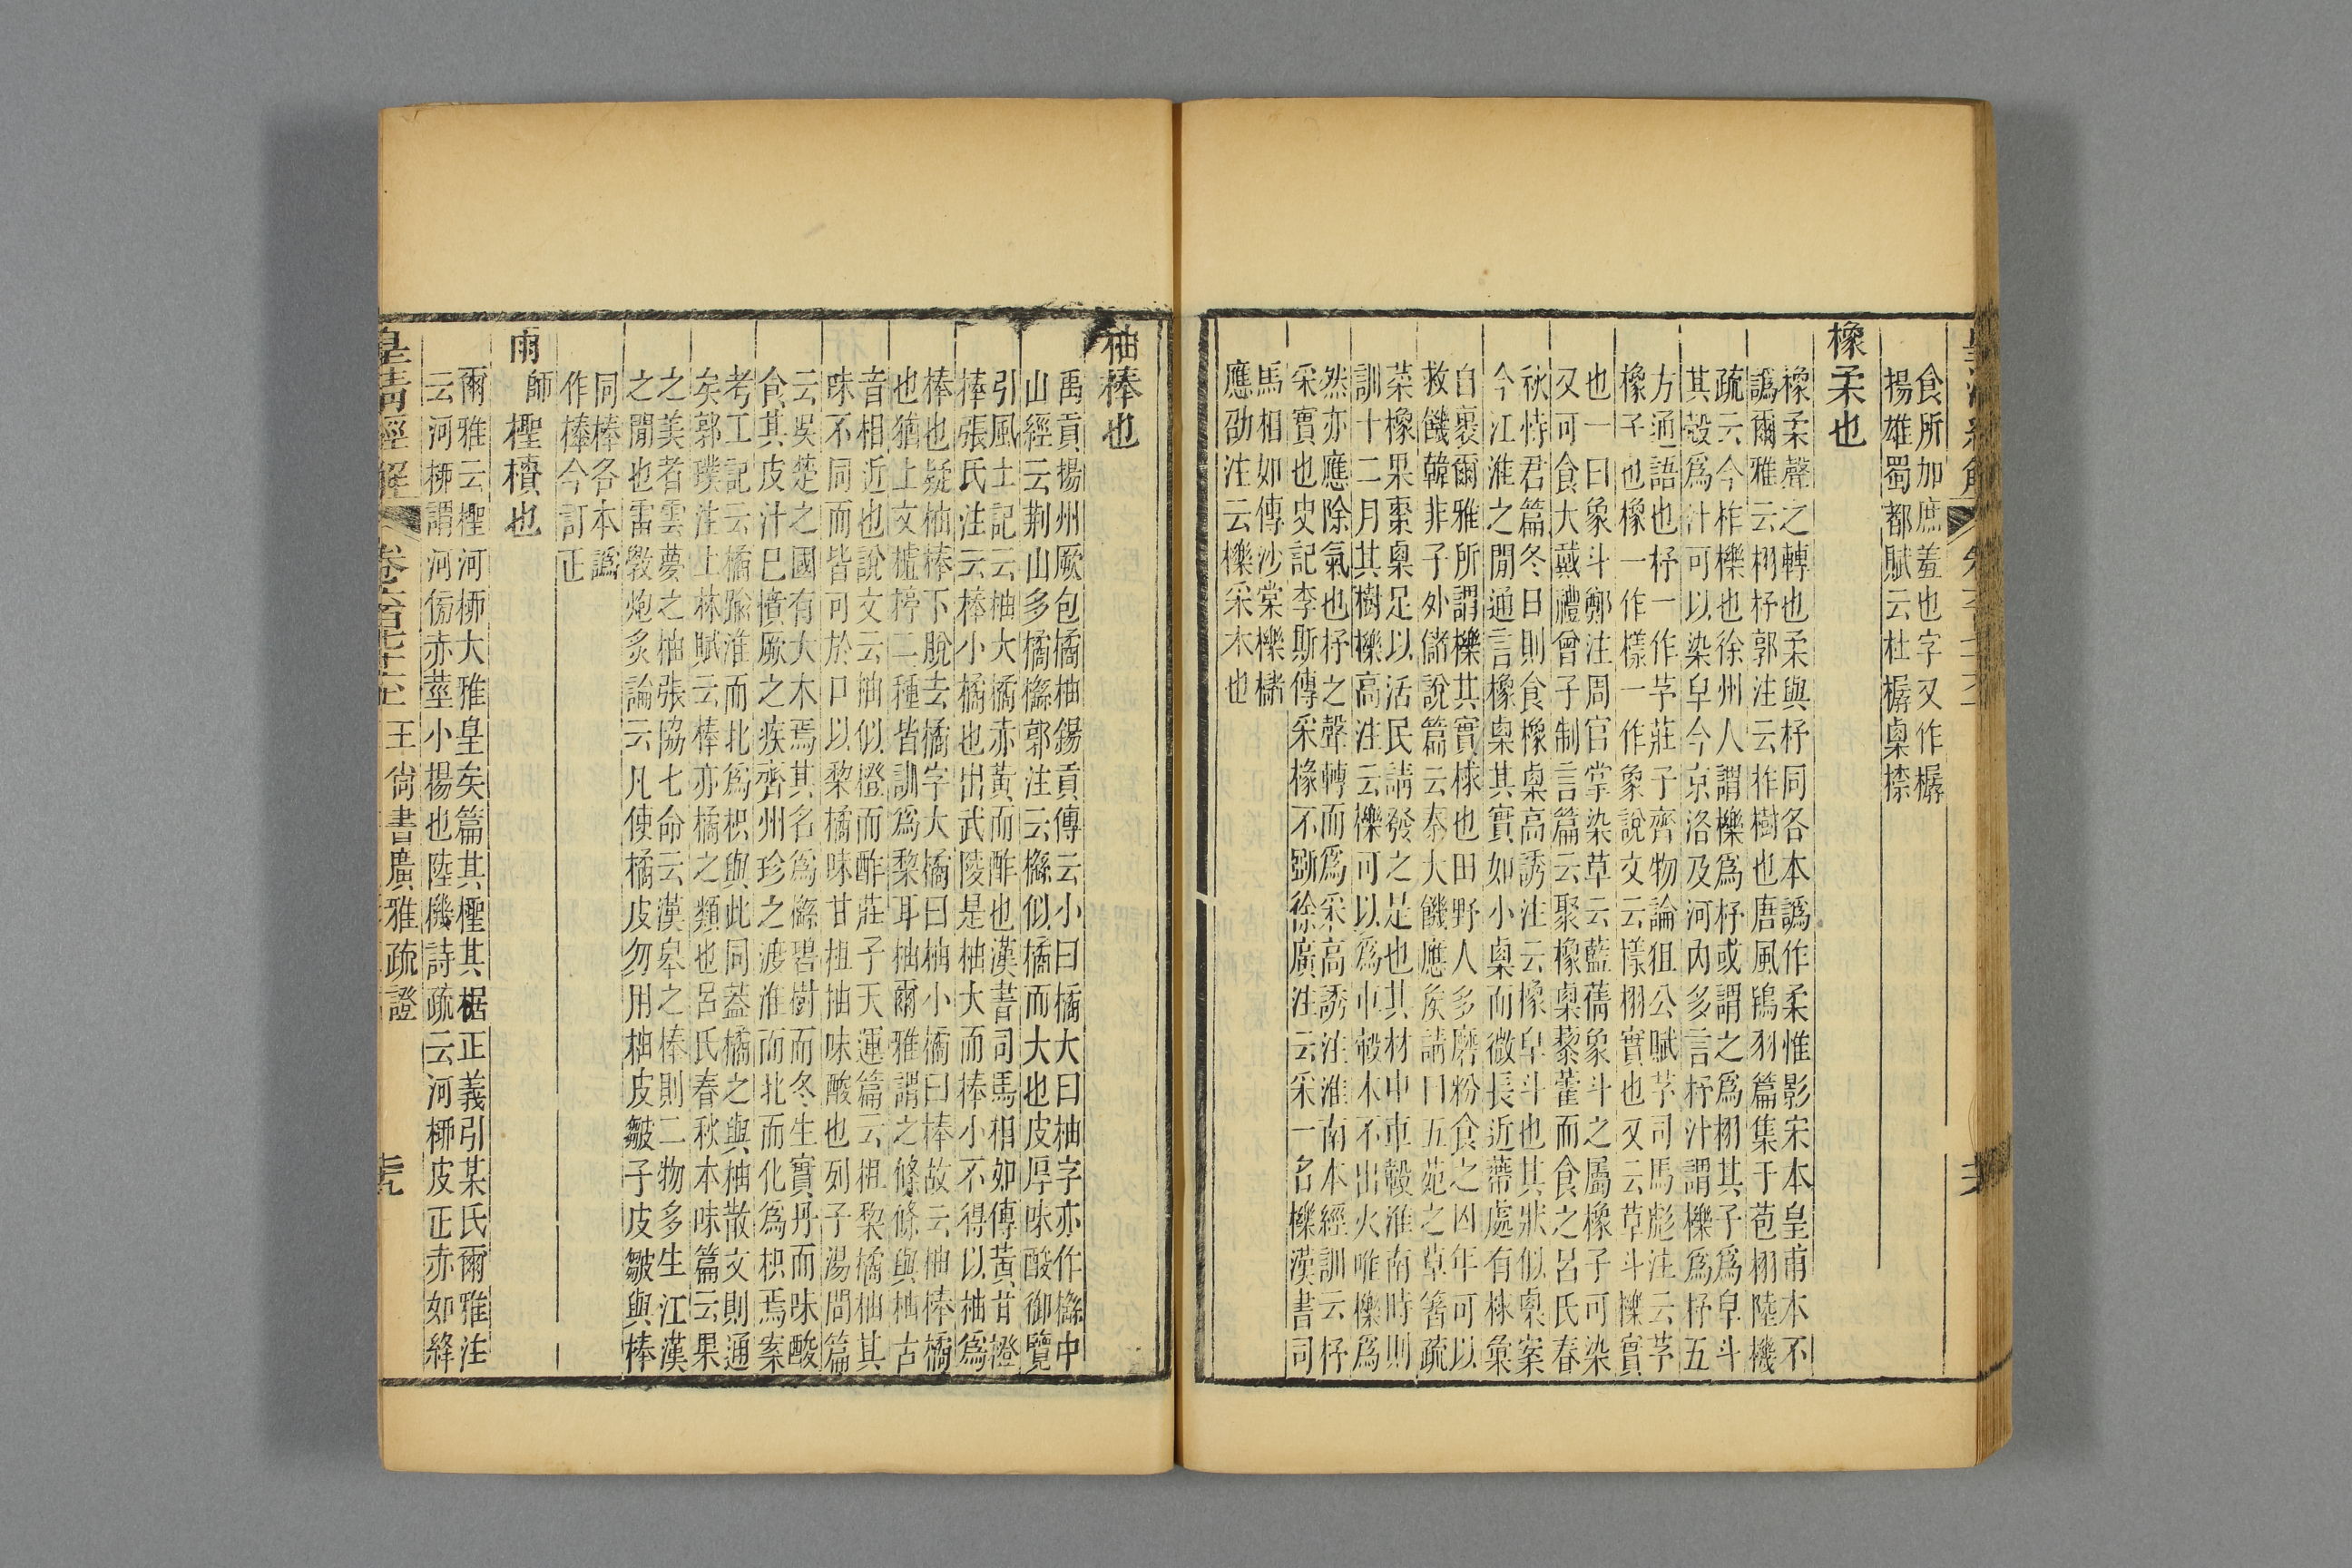 食所加庶羞也字又作樼
揚雄蜀都賦云杜樼㮚㮏
橡柔也
橡柔聲之轉也柔與杼同各本譌作柔惟影宋本皇甫本不
譌爾雅云栩杼郭注云柞樹也唐風鴇羽篇集于苞栩陸機
疏云今柞櫟也徐州人謂櫟爲杼或謂之爲栩其子爲皁斗
其殼爲汁可以染皁今京洛及河內多言杼汁謂櫟爲杼五
方通語也杼一作芧莊子齊物論狙公賦芧司馬彪注云芧
橡子也橡一作樣一作象說文云樣栩實也又云草斗櫟實
也一曰象斗鄭注周官掌染草云藍蒨象斗之屬橡子可染
又可食大戴禮曾子制言篇云聚橡㮚藜藿而食之呂氏春
秋恃君篇冬日則食橡㮚高誘注云橡皁斗也其狀似㮚案
今江淮之閒通言橡㮚其實如小㮚而微長近蔕處有梂彙
自裹爾雅所謂櫟其實梂也田野人多磨粉食之凶年可以
救饑韓非子外儲說篇云秦大饑應矦請曰五苑之草箸疏
菜橡果棗㮚足以活民請發之是也其材中車轂淮南時則
訓十二月其樹櫟高注云櫟可以爲車轂木不出火唯櫟爲
然亦應除氣也杼之聲轉而爲采高誘注淮南本經訓云杼
采實也史記李斯傳采椽不斲徐廣注云采一名櫟漢書司
馬相如傳沙棠櫟櫧
應劭注云櫟采木也
柚㯶也
禹貢揚州厥包橘柚錫貢傳云小曰橘大曰柚字亦作櫾中
山經云荆山多橘櫾郭注云櫾似橘而大也皮厚味酸御覽
引風土記云柚大橘赤黃而酢也漢書司馬相如傳黃甘橙
㯶張氏注云㯶小橘也出武陵是柚大而㯶小不得以柚爲
㯶也疑柚㯶下脫去橘字大橘曰柚小橘曰㯶故云柚㯶橘
也猶上文樝梬二種皆訓爲棃耳柚爾雅謂之條條與柚古
音相近也說文云柚似橙而酢莊子天運篇云柤棃橘柚其
味不同而皆可於口以棃橘味甘柤柚味酸也列子湯問篇
云吳楚之國有大木焉其名爲櫾碧樹而冬生實丹而味酸
食其皮汁已憤厥之疾齊州珍之渡淮而北而化爲枳焉案
考工記云橘踰淮而北爲枳與此同蓋橘之與柚散文則通
矣郭璞注上林賦云㯶亦橘之類也呂氏春秋本味篇云果
之美者雲夢之柚張協七命云漢皋之㯶則二物多生江漢
之閒也雷斆炮炙論云凡使橘皮勿用柚皮皺子皮皺與㯶
同㯶各本譌
作㯶今訂正
雨師檉檟也
爾雅云檉河桺大雅皇矣篇其檉其椐正義引某氏爾雅注
云河桺謂河傍赤莖小楊也陸機詩疏云河桺皮正赤如絳
皇清經解 卷六百七十五 王尙書廣雅疏證